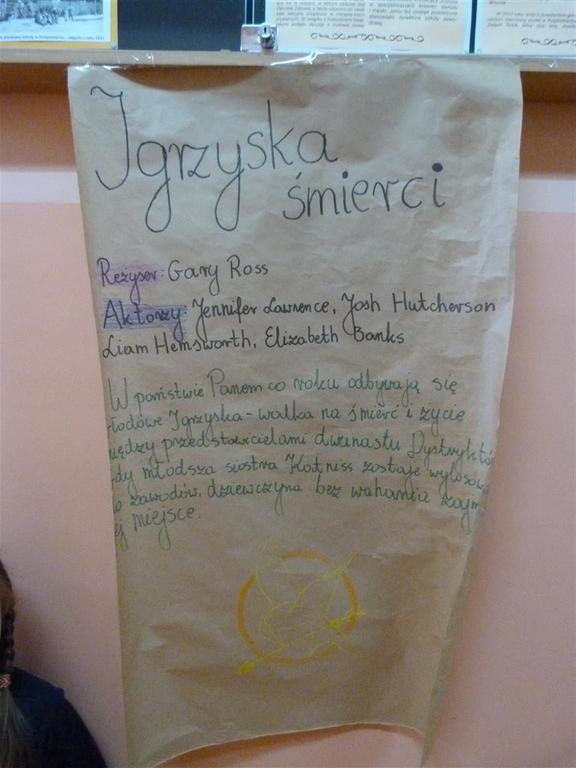 Igrzyska
śmierci
Reżyser: Gary Ross
Aktorzy: Jennifer Lawrence, Josh Hutcherson
Liam Hemsworth, Elizabeth Banks
W państwie Panem co roku odbywają się
łodowe Igrzyska - walka na śmierć i życie
iędzy przedstawicielami dwunastu Dystryktó
dy młodsza siostra Katniss zostaje wylosow
o zawodów, dziewczyna bez wahania zajm
ej miejsce.